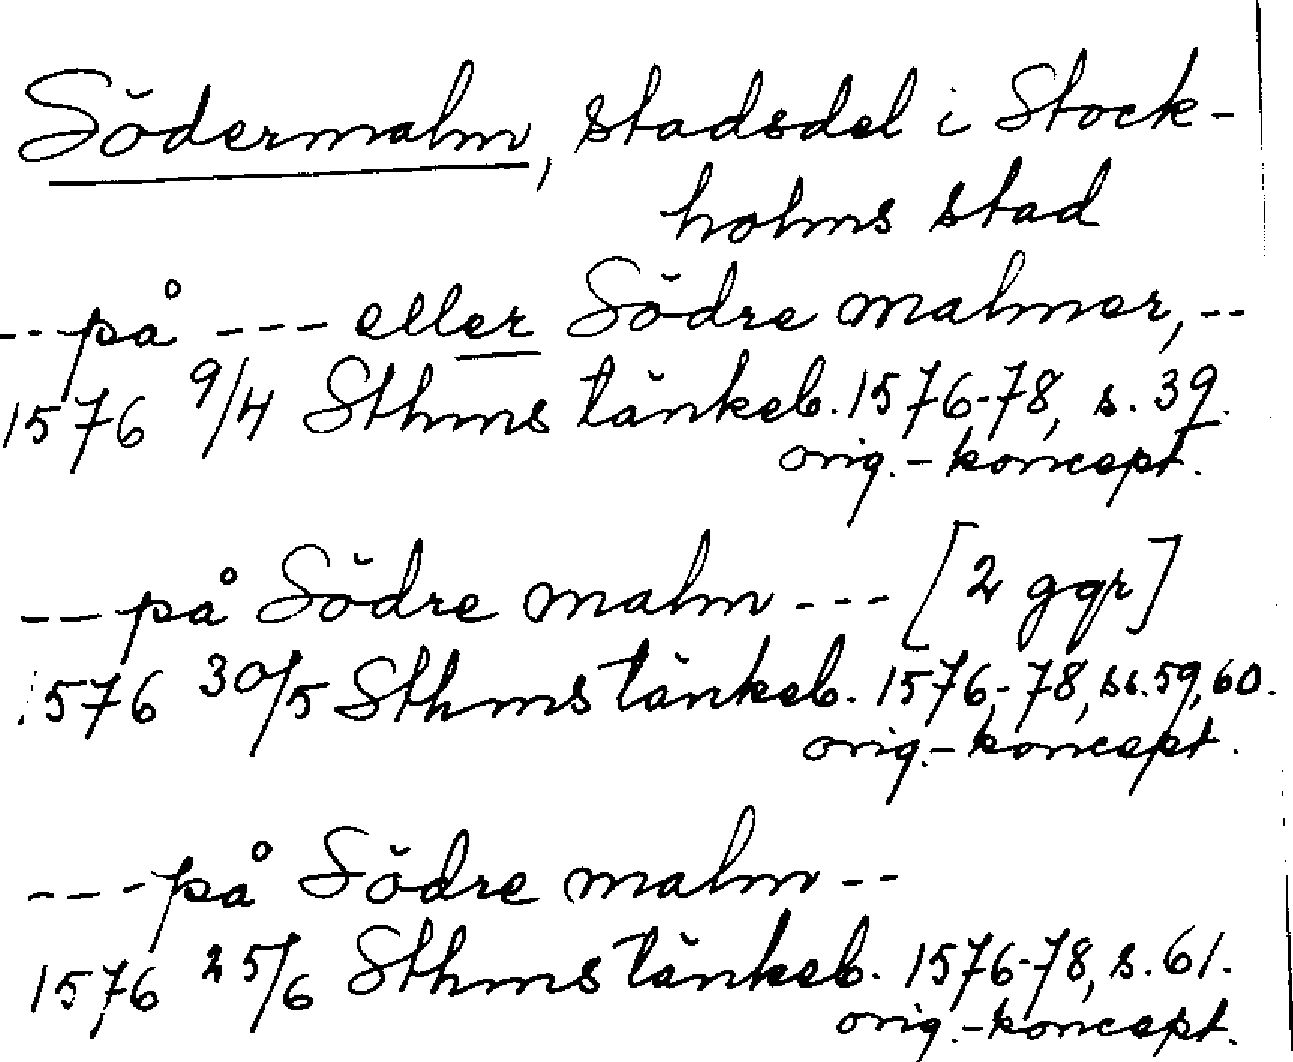 Södermalm, stadsdel i Stock-
holms stad
-- på --- eller Södre malmer, --
1576 9/4 Sthms tänkeb. 1576-78, s. 39.
orig.-koncept.
-- på Södre malm --- [2 ggr]
1576 30/5 Sthms tänkeb. 1576-78, ss. 59, 60.
orig.-koncept.
--- på Södre malm --
1576 25/6 Sthms tänkeb. 1576-78, s. 61.
orig.-koncept.